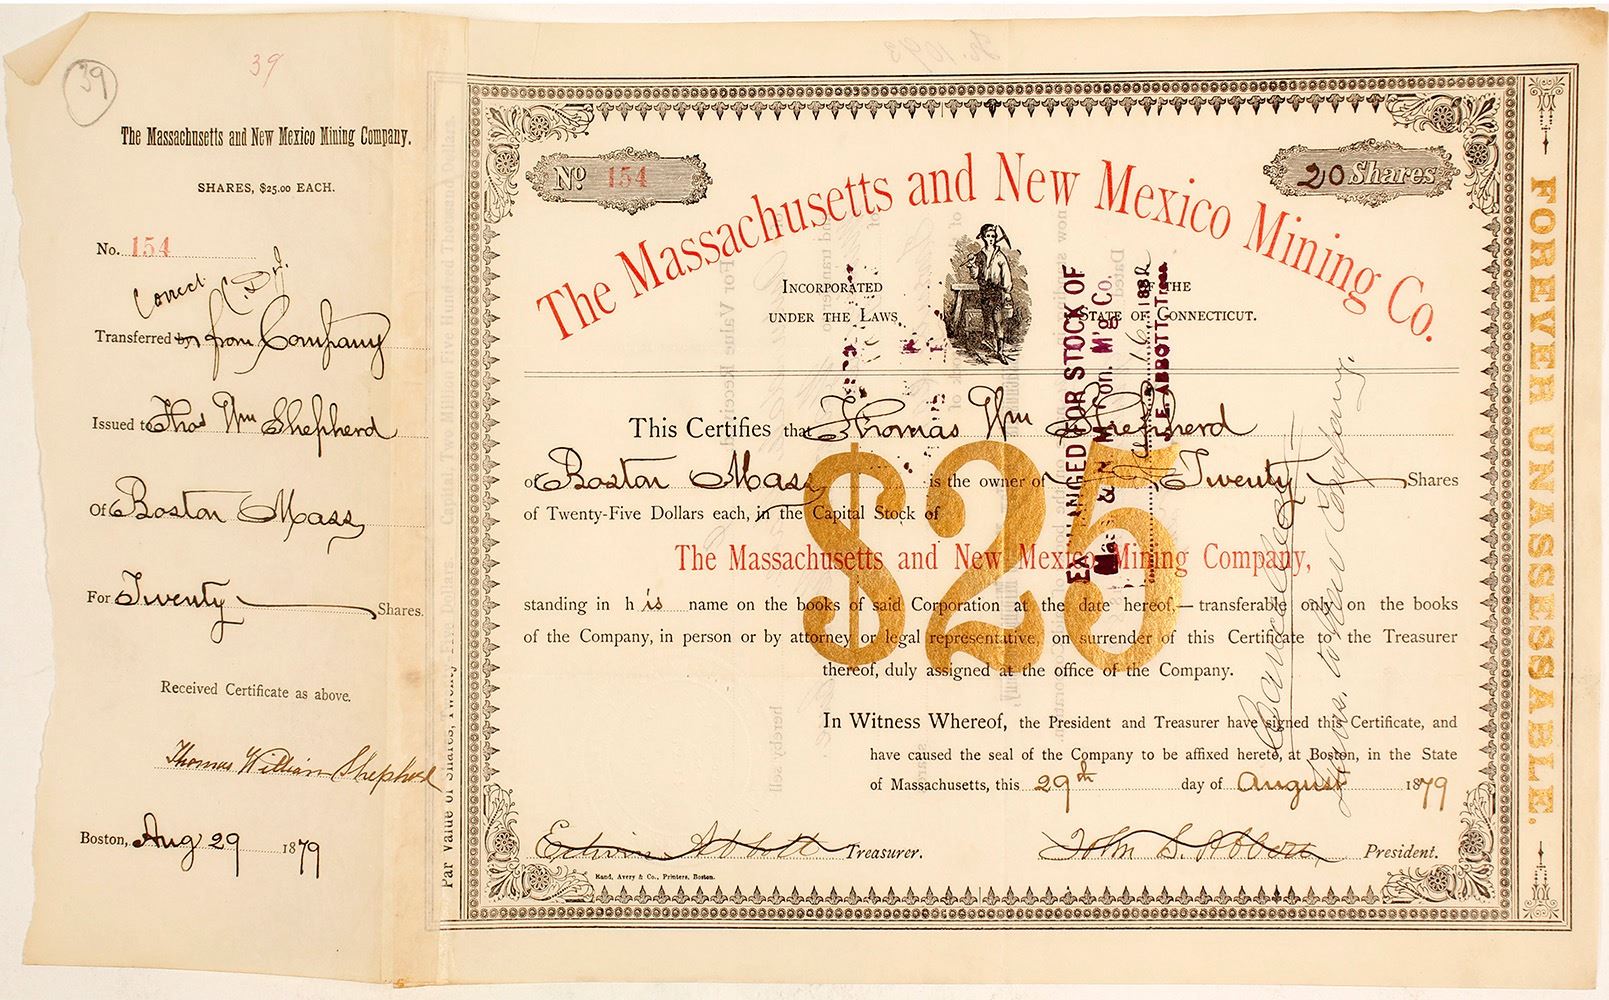 39
39
The Massachusetts and New Mexico Mining Company.
SHARES, $25.00 EACH.
No. 154
Correct
Transferred by from Company
Issued to Thos Wm Shepherd
Of Boston Mass
For Twenty Shares.
Received Certificate as above.
Thomas William Shepherd
Boston, Aug 29 1879
Par Value of Shares, Twenty Five Dollars. Capital, Two Hundred Thousand Dollars.
No 154
20 Shares
The Massachusetts and New Mexico Mining Co.
INCORPORATED OF THE
UNDER THE LAWS STATE OF CONNECTICUT.
This Certifies that Thomas Wm Shepherd
of Boston Mass is the owner of Twenty Shares
of Twenty-Five Dollars each, in the Capital Stock of
$25
The Massachusetts and New Mexico Mining Company,
standing in his name on the books of said Corporation at the date hereof,— transferable only on the books
of the Company, in person or by attorney or legal representative, on surrender of this Certificate to the Treasurer
thereof, duly assigned at the office of the Company.
In Witness Whereof, the President and Treasurer have signed this Certificate, and
have caused the seal of the Company to be affixed hereto, at Boston, in the State
of Massachusetts, this 29th day of August 1879
Edwin Abbott Treasurer.
John S. Abbott President.
Rand, Avery & Co., Printers, Boston.
EXCHANGED FOR STOCK OF
Mass & N M Con. M'g Co.
1882
E. ABBOTT Treas
Cancelled
to New Company.
FOREVER UNASSESSABLE.